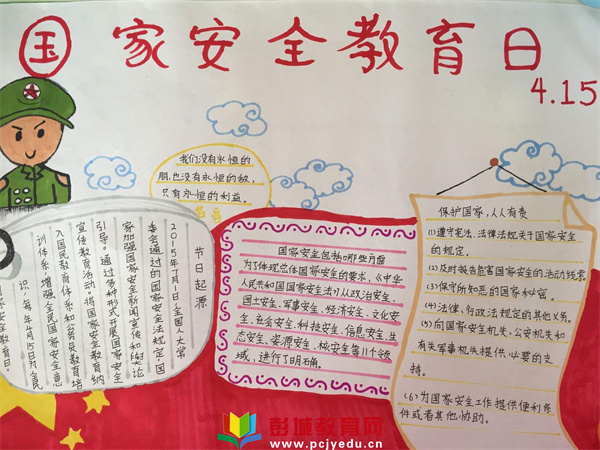 国家安全教育日
4.15
我们没有永恒的
朋,也没有永恒的敌,
只有永恒的利益。
节日起源
2015年7月1日,全国人大常
委会通过的《国家安全法》规定,国
家加强国家安全新闻宣传和舆论
引导。通过多种形式开展国家安全
宣传教育活动。将国家安全教育纳
入国民教育体系和公务员教育培
训体系,增强全民国家安全意
识。每年4月15日为全民
国家安全教育日。
国家安全包括哪些方面
为了体现总体国家安全的要求,《中华
人民共和国国家安全法》从政治安全、
国土安全、军事安全、经济安全、文化安
全、社会安全、科技安全、信息安全、生
态安全、资源安全、核安全等11个领
域,进行了明确。
保护国家,人人有责
(1)遵守宪法、法律法规关于国家安全
的规定。
(2)及时报告危害国家安全的活动线索
(3)保守所知悉的国家秘密。
(4)法律、行政法规规定的其他义务。
(5)向国家安全机关、公安机关和
有关军事机关提供必要的支
持。
(6)为国家安全工作提供便利条
件或者其他协助。
彭城教育网
www.pcjyedu.cn